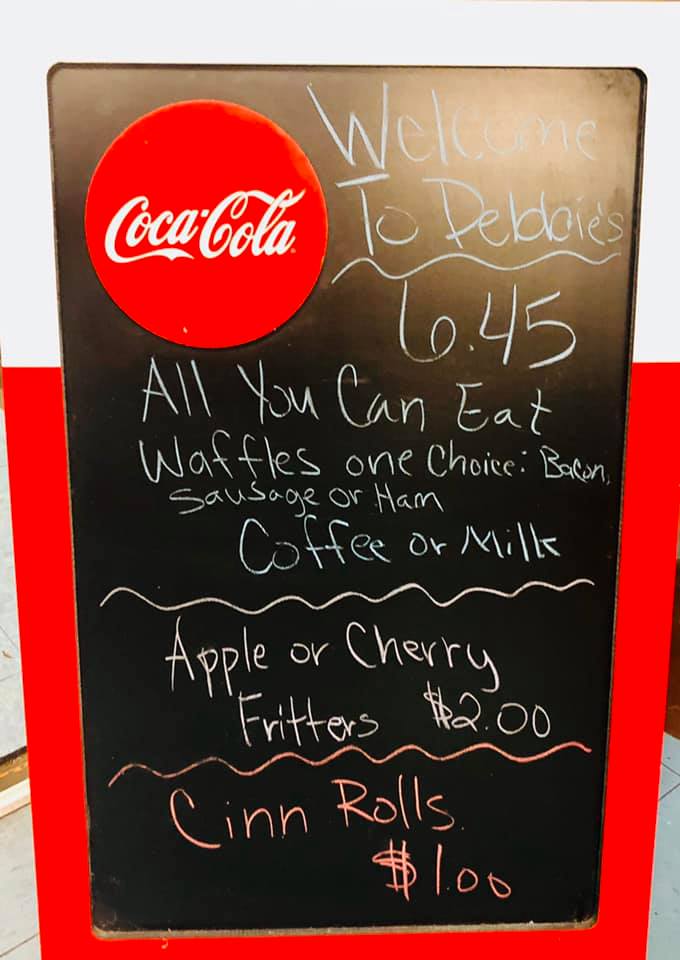 Coca-Cola
Welcome
To Debbie's
6.45
All You Can Eat
Waffles one Choice: Bacon,
Sausage or Ham
Coffee or Milk
Apple or Cherry
Fritters $2.00
Cinn Rolls
$1.00